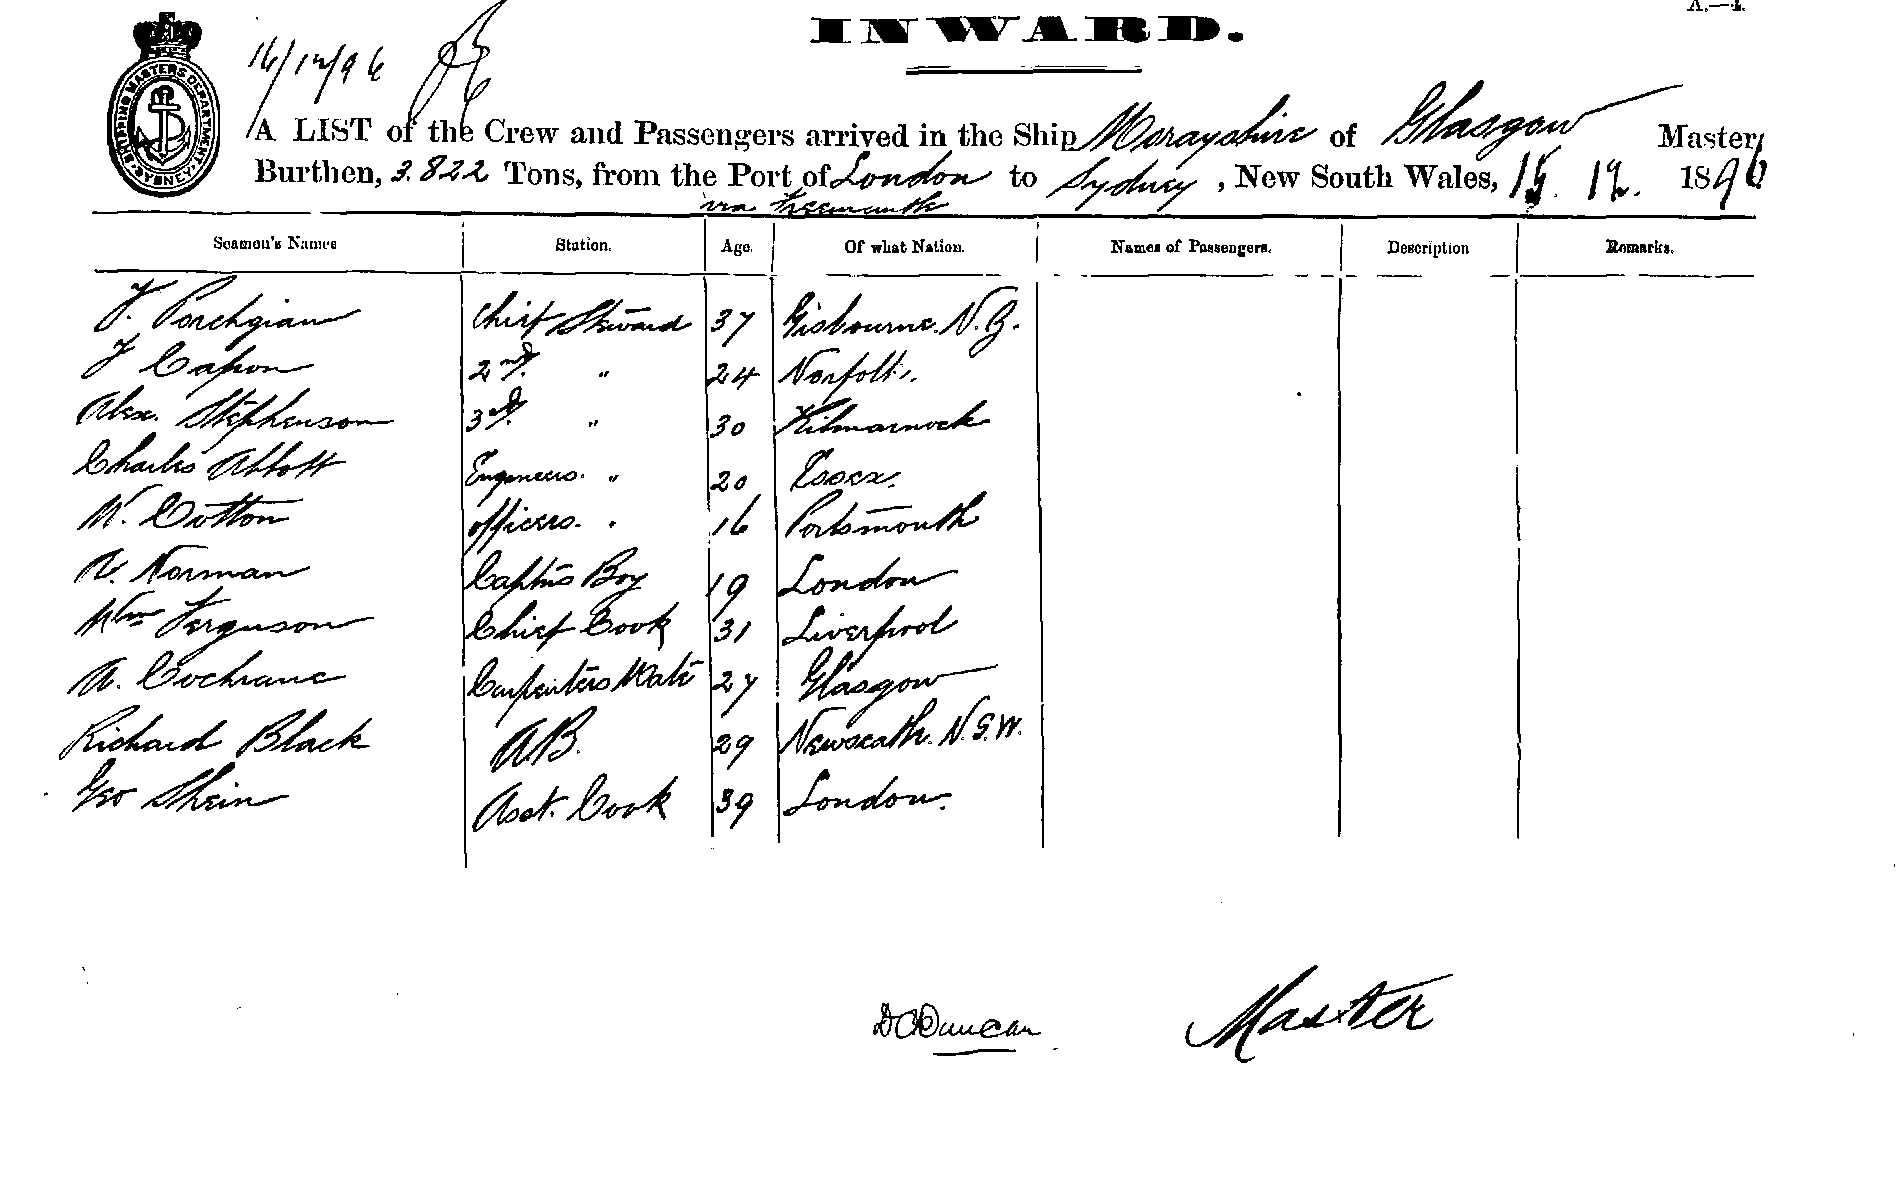 A.—4.
INWARD.
16/12/96
SHIPPING MASTERS DEPARTMENT SYDNEY
A LIST of the Crew and Passengers arrived in the Ship Morayshire of Glasgow Master,
Burthen, 3.822 Tons, from the Port of London to Sydney, New South Wales, 15. 12. 1896
via Freemantle
Seamen's Names Station. Age. Of what Nation. Names of Passengers. Description Remarks.
Chief Steward 37 Gisbourne. N.Z.
J Capon 2nd. " 24 Norfolk.
Alex. Stephenson 3rd. " 30 Kilmarnock
Charles Abbott Engineers. " 20 Essex.
W. Cotton officers. " 16 Portsmouth
A. Norman Captns Boy 19 London
Wm Ferguson Chief Cook 31 Liverpool
A. Cochrane Carpenters Mate 27 Glasgow
Richard Black A.B. 29 Newscatle. N.S.W.
Geo Shein Asst. Cook 39 London.
DC Duncan Master